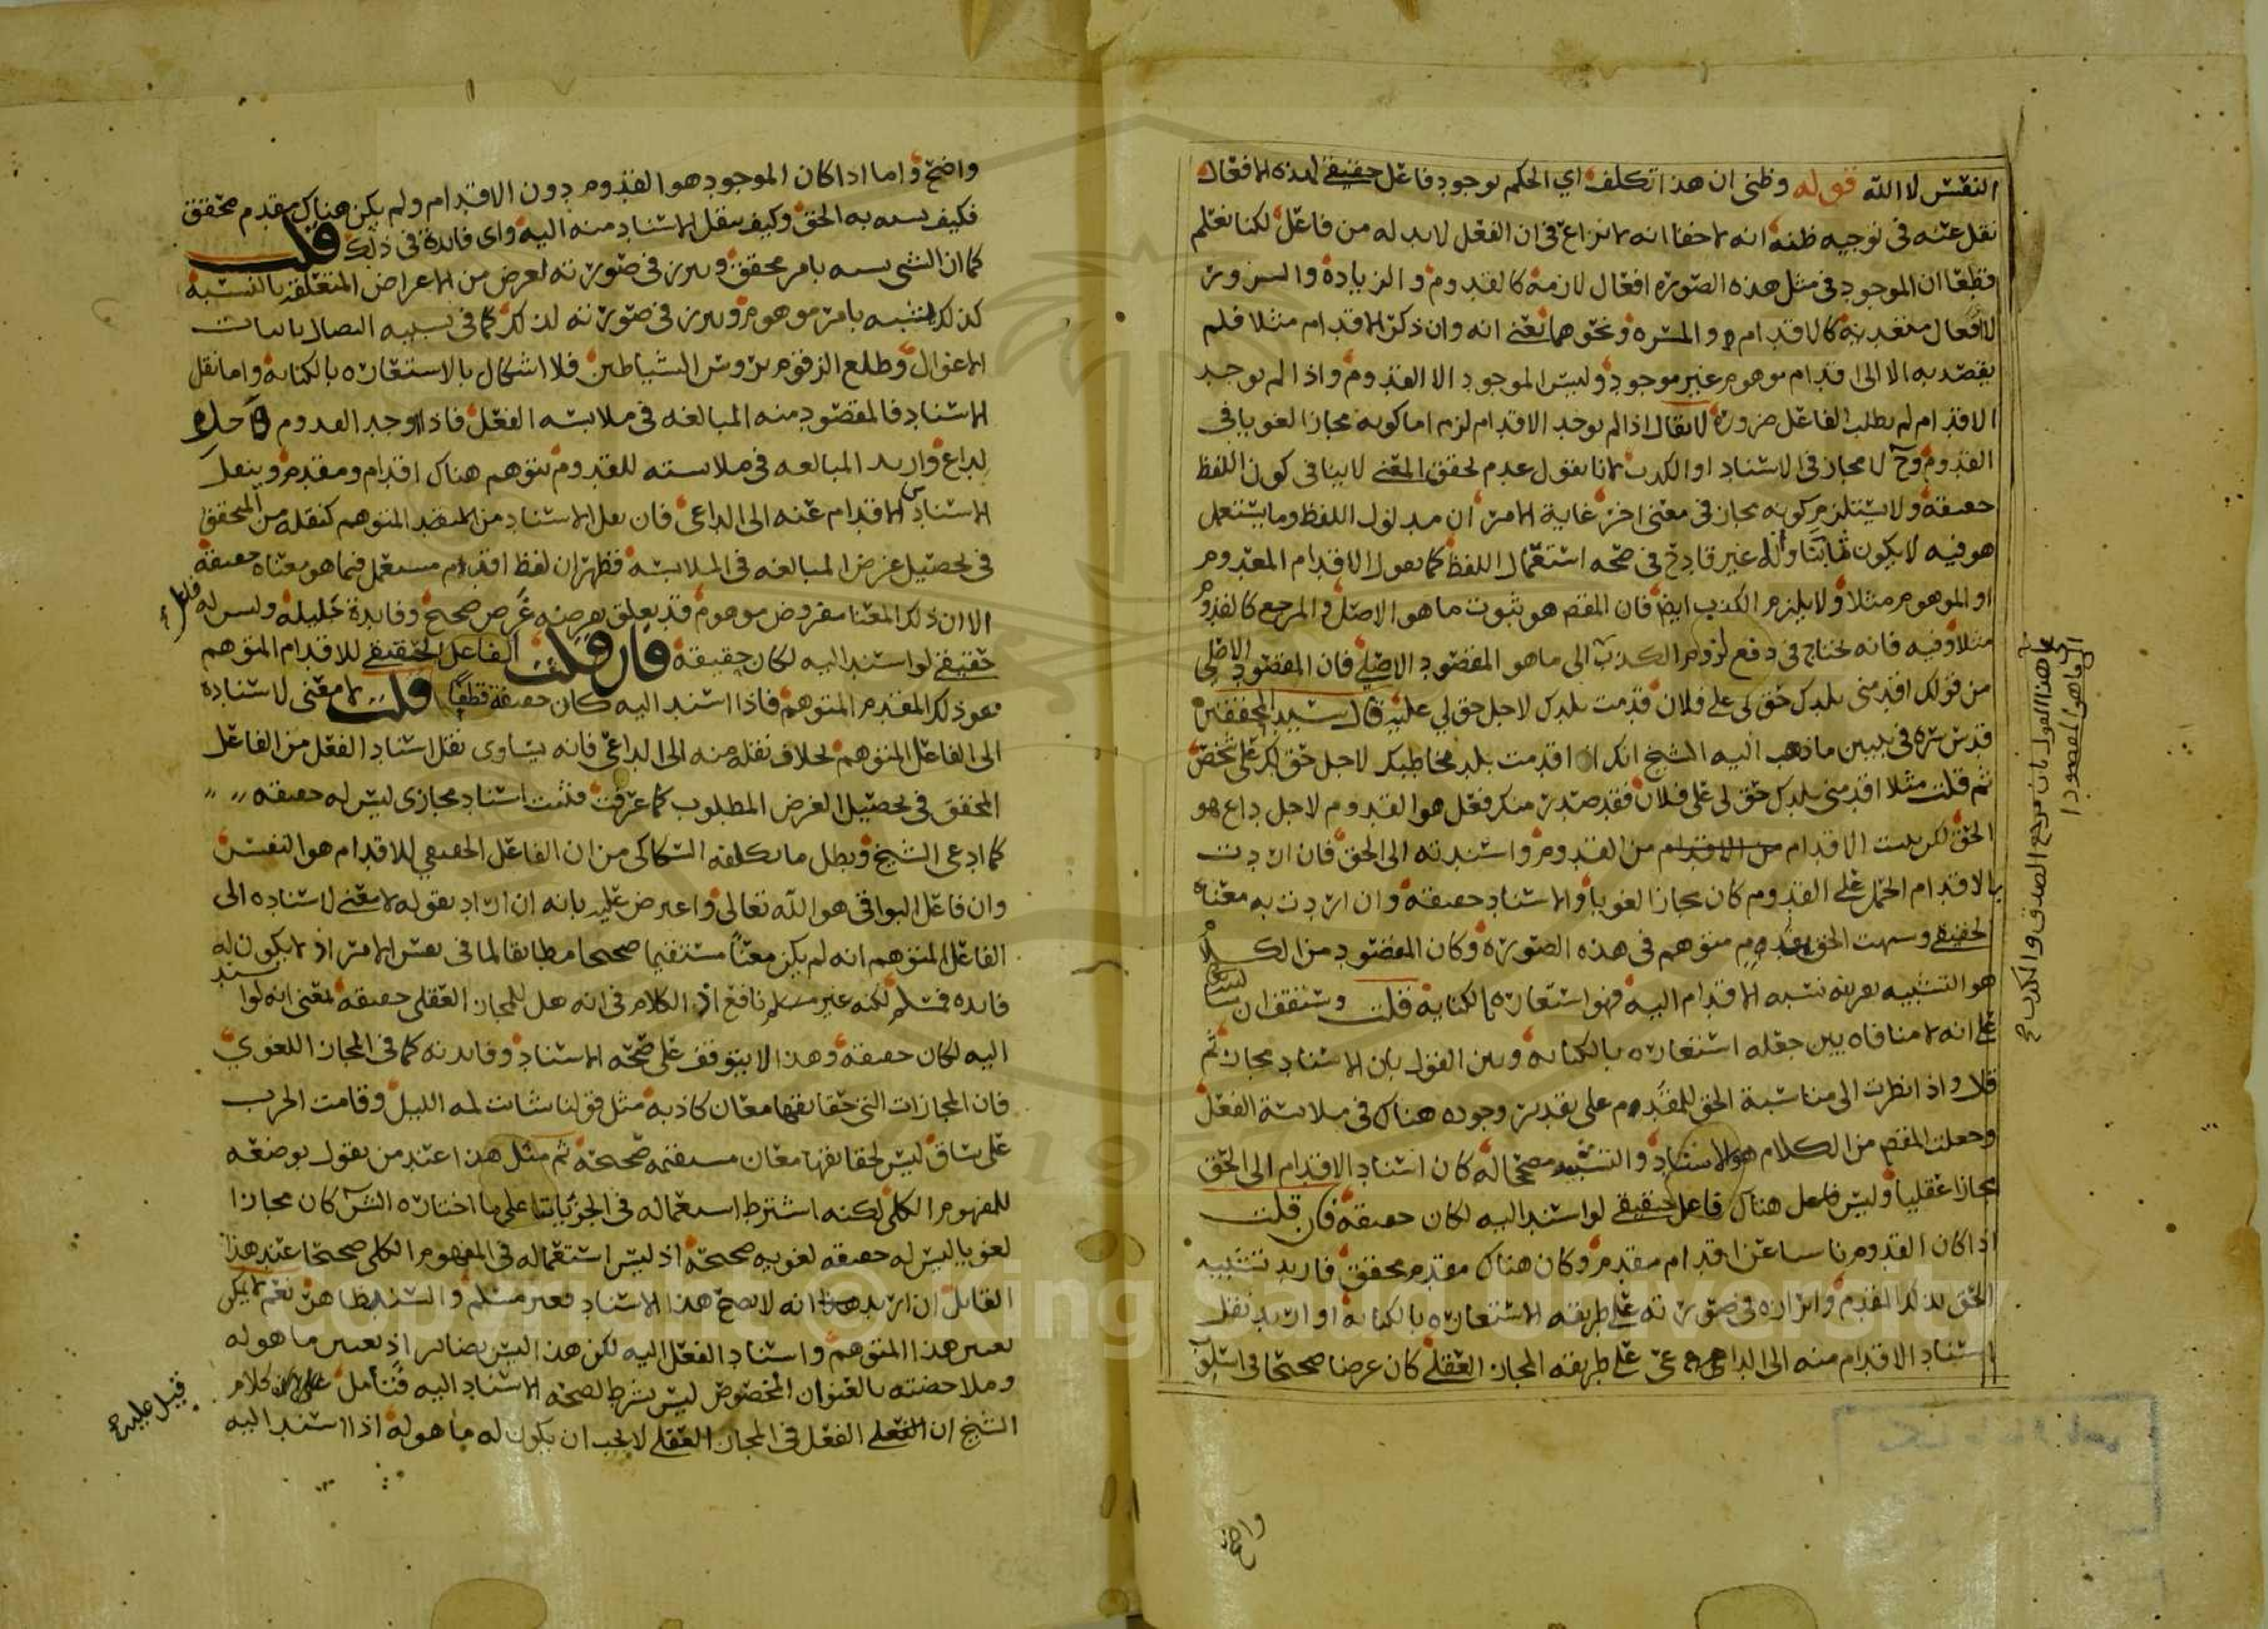 النفس لا الله قوله وظني ان هذا تكلف اي الحكم بوجود فاعل حقيقي لهذه الافعال
نقل عنه في توجيه ظنه انه لا خفا انه لا نزاع في ان الفعل لابد له من فاعل لكنا نعلم
قطعا ان الموجود في مثل هذه الصوره افعال لازمة كالقدوم والزيادة والسرور
لا افعال متعديه كالاقدام والمسره ونحوهما نعني انه وان ذكر الاقدام مثلا فلم
يقصد به الا الى اقدام موهوم غير موجود وليس الموجود الا القدوم واذا لم يوجد
الاقدام لم يطلب الفاعل ضرورة لا يقال اذا لم يوجد الاقدام لزم اما كونه مجازا لغويا في
القدوم وح لا مجاز في الاسناد او الكذب لانا نقول عدم تحقق المعنى لا ينافي كون اللفظ
حقيقة ولا يستلزم كونه مجاز في معنى اخر غاية الامر ان مدلول اللفظ وما يستعمل
هو فيه لا يكون ثابتا وانه غير قادح في صحه استعمال اللفظ كما نقول الاقدام المعدوم
او الموهوم مثلا ولا يلزم الكذب ايض فان المقص هو ثبوت ما هو الاصل والمرجع كالقدوم
مثلا وفيه فانه نحتاج في دفع لزوم الكذب الى ما هو المقصود الاصلي فان المقصود الاصلي
من قولك اقدمني بلدك حق لي على فلان قدمت بلدك لاجل حق لي عليه قال سيد المحققين
قدس سره في تبيين ما ذهب اليه الشيخ انك اذا قدمت بلد مخاطبك لاجل حق لك على شخص
ثم قلت مثلا اقدمني بلدك حق لي على فلان فقد صدر منك فعل هو القدوم لاجل داع هو
الحق لكن بنيت الاقدام من الاقدام من القدوم واسندته الى الحق فان اردت
بالاقدام الحمل على القدوم كان مجازا لغويا والاسناد حقيقة وان اردت به معناه
الحقيقي وشبهت الحق بمقدم متوهم في هذه الصورة وكان المقصود من الكلام
هو التشبيه بقرينة نسبة الاقدام اليه فهو استعارة بالكناية قلت وستقف ان شا
على انه لا منافاه بين جعله استعاره بالكنايه وبين القول بان الاسناد مجاز ثم
قال واذا نظرت الى مناسبة الحق للمقدم على تقدير وجوده هناك في ملابسة الفعل
وجعلت المقص من الكلام هو الاسناد والتشبيه مصححا له كان اسناد الاقدام الى الحق
مجازا عقليا وليس هناك فاعل حقيقي لو اسند اليه لكان حقيقة فان قلت
اذا كان القدوم ناشيا عن اقدام مقدم وكان هناك مقدم محقق فاريد تشبيه
الحق بذلك المقدم وابرازه في صورته على طريقه الاستعاره بالكنايه او اريد نقل
اسناد الاقدام منه الى الداعي على طريقه المجاز العقلي كان غرضا صحيحا في اسلوب
على هذا القول بان مرجع الصدق والكذب
الى ما هو المقصود
واضح
واضح واما اذا كان الموجود هو القدوم دون الاقدام ولم يكن هناك مقدم محقق
فكيف يشبه به الحق وكيف ينقل الاسناد منه اليه واى فائدة في ذلك قلت
كما ان الشي يشبه بامر محقق ويبرز في صورته لغرض من الاعراض المتعلقة بالنسبة
كذلك يشبه بامر موهوم ويبرز في صورته لذلك كما في تشبيه النصال بانياب
الاغوال وطلع الزقوم بروس الشياطين فلا اشكال بالاستعاره بالكنايه واما نقل
الاسناد فالمقصود منه المبالغه في ملابسه الفعل فاذا وجد القدوم لاجل
لداع واريد المبالغه في ملابسته للقدوم يتوهم هناك اقدام ومقدم وينقل
اسناد الاقدام عنه الى الداعى فان نقل الاسناد من المقدم المتوهم كنقله من المحقق
في تحصيل غرض المبالغه في الملابسه فظهر ان لفظ اقدام مستعمل فيما هو معناه حقيقة
الا ان ذلك المعنا مفروض موهوم قد يعلق بفرضه غرض صحيح وفايدة جليله وليس له فاعل
حقيقي لو اسند اليه لكان حقيقة فان قلت الفاعل الحقيقي للاقدام المتوهم
هو ذلك المقدم المتوهم فاذا اسند اليه كان حقيقة قطعا قلت لا معنى لاسناده
الى الفاعل المتوهم بخلاف نقله منه الى الداعي فانه يساوى نقل اسناد الفعل من الفاعل
المحقق في تحصيل الغرض المطلوب كما عرفت فثبت اسناد مجازى ليس له حقيقه
كما ادعى الشيخ وبطل ما تكلفه السكاكى من ان الفاعل الحقيقي للاقدام هو النفس
وان فاعل البواقي هو الله تعالى واعترض عليه بانه ان اراد بقوله لا معنى لاسناده الى
الفاعل المتوهم انه لم يكن معنا مستقيما صحيحا مطابقا لما في نفس الامر اذ لا يكون له
فائده فمسلم لكنه غير نافع اذ الكلام في انه هل للمجاز العقلى حقيقه بمعنى انه لو اسند
اليه لكان حقيقه وهذا لا يتوقف على صحه الاسناد وفايدته كما في المجاز اللغوي
فان المجازات التي حقايقها معان كاذبه مثل قولنا شابت لمه الليل وقامت الحرب
على ساق ليس لحقايقها معان مستقيمه صحيحة ثم مثل هذا عند من يقول بوضعه
للمفهوم الكلى لكنه اشترط استعماله في الجزئيات على ما اختاره الش كان مجازا
لغويا ليس له حقيقه لغويه صحيحة اذ ليس استعماله في المفهوم الكلى صحيحا عند هذا
القايل ان اريد انه لا يصح هذا الاسناد فغير مسلم والسند ظاهر نعم لا يمكن
تعيين هذا المتوهم واسناد الفعل اليه لكن هذا ليس بضائر اذ تعيين ما هو له
وملاحضته بالعنوان المخصوص ليس بشرط لصحه الاسناد اليه فتأمل على ان كلام
الشيخ ان الفعل في المجاز العقلي لا يجب ان يكون له ما هو له اذا اسند اليه
قيل عليه